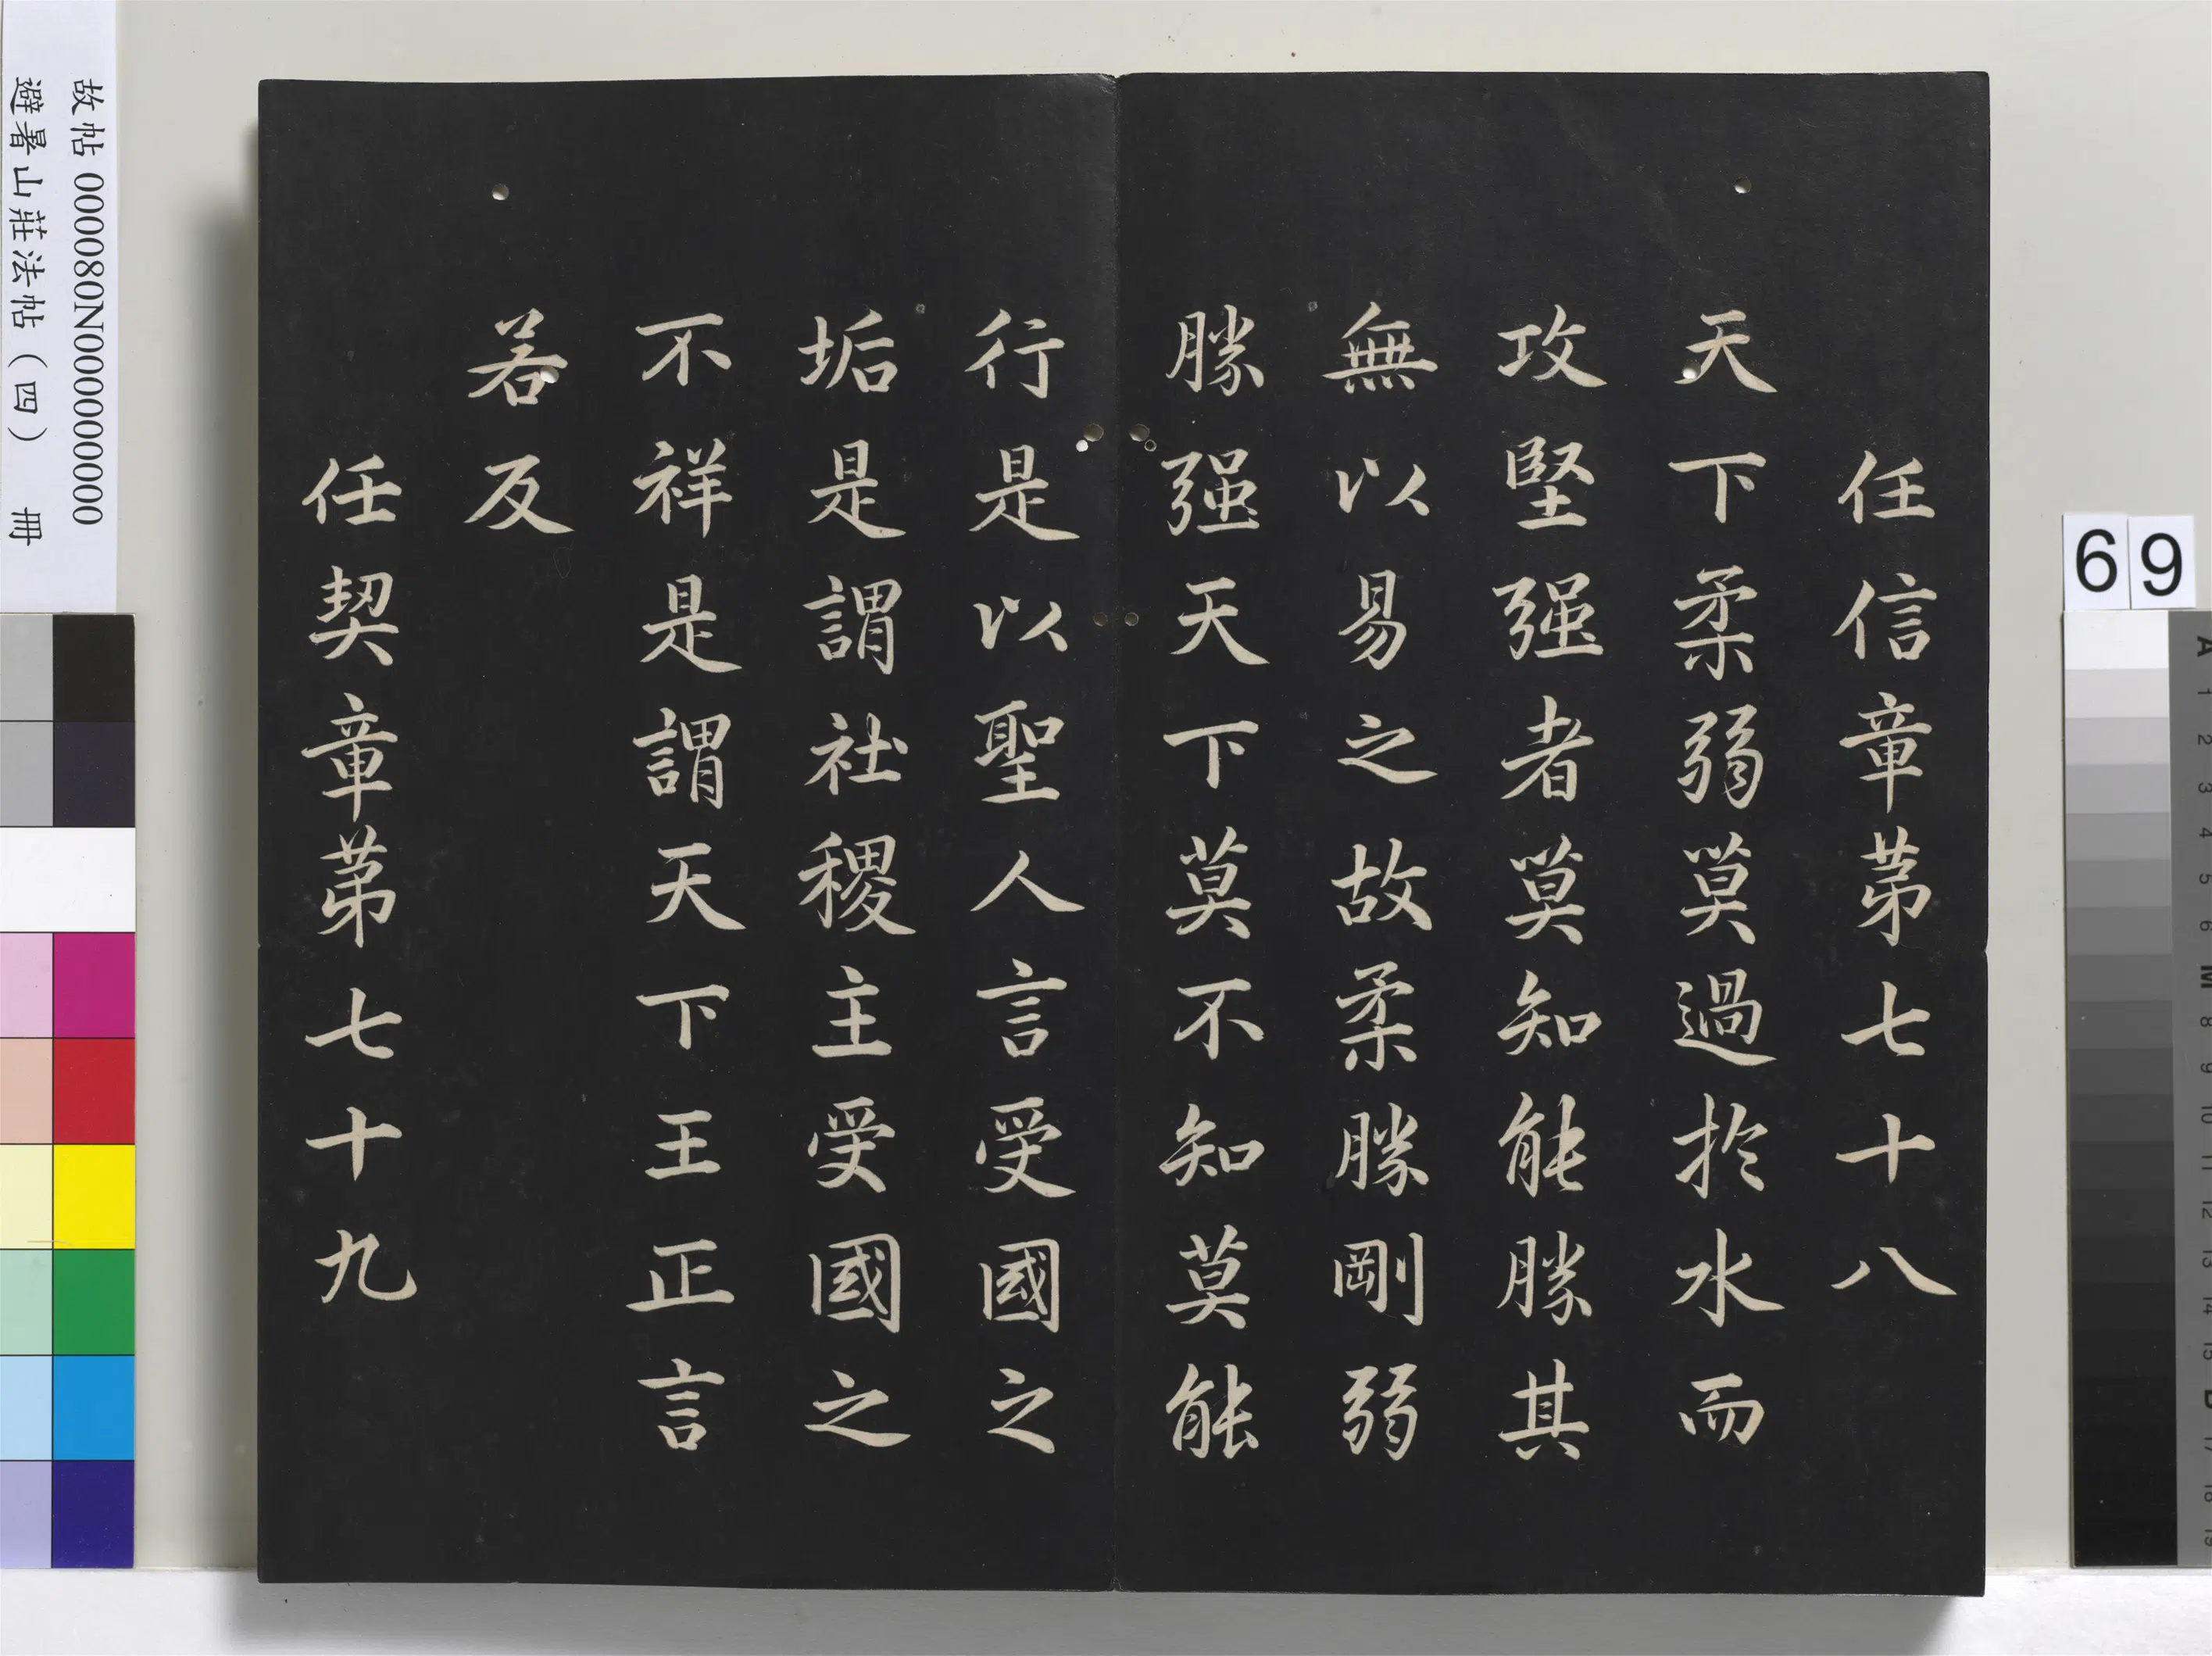 任信章第七十八
天下柔弱莫過於水而
攻堅强者莫知能勝其
無以易之故柔勝剛弱
勝强天下莫不知莫能
行是以聖人言受國之
垢是謂社稷主受國之
不祥是謂天下王正言
若反
任契章第七十九
故帖 000080N000000000
避暑山莊法帖（四） 冊
69
A
1
2
3
4
5
6
M
8
9
10
11
12
13
14
15
B
17
18
19